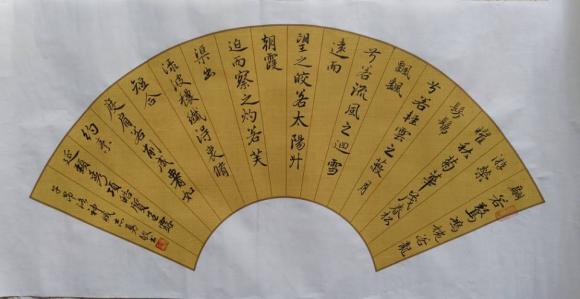 翩若驚鴻婉若龍
游榮
曜秋菊華茂春松
髣髴
兮若輕雲之蔽月
飄飄
兮若流風之迴雪
遠而
望之皎若太陽升
朝霞
迫而察之灼若芙
蕖出
淥波襛纖得衷脩
短合
度肩若削成要如
約素
延頸秀項皓質呈露
子昂洛神賦